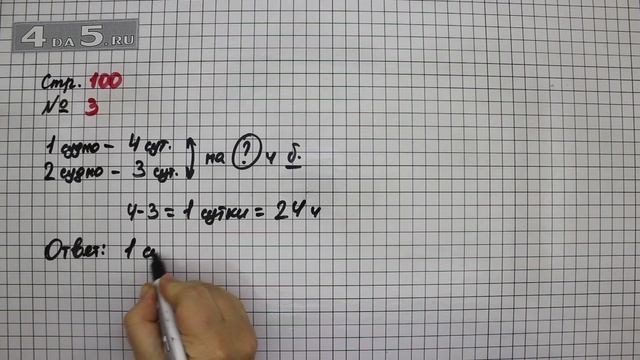 4DA5.RU
Стр. 100
№ 3
1 судно – 4 сут.
2 судно – 3 сут.
на ? ч б.
4-3 = 1 сутки = 24 ч
Ответ: 1 с